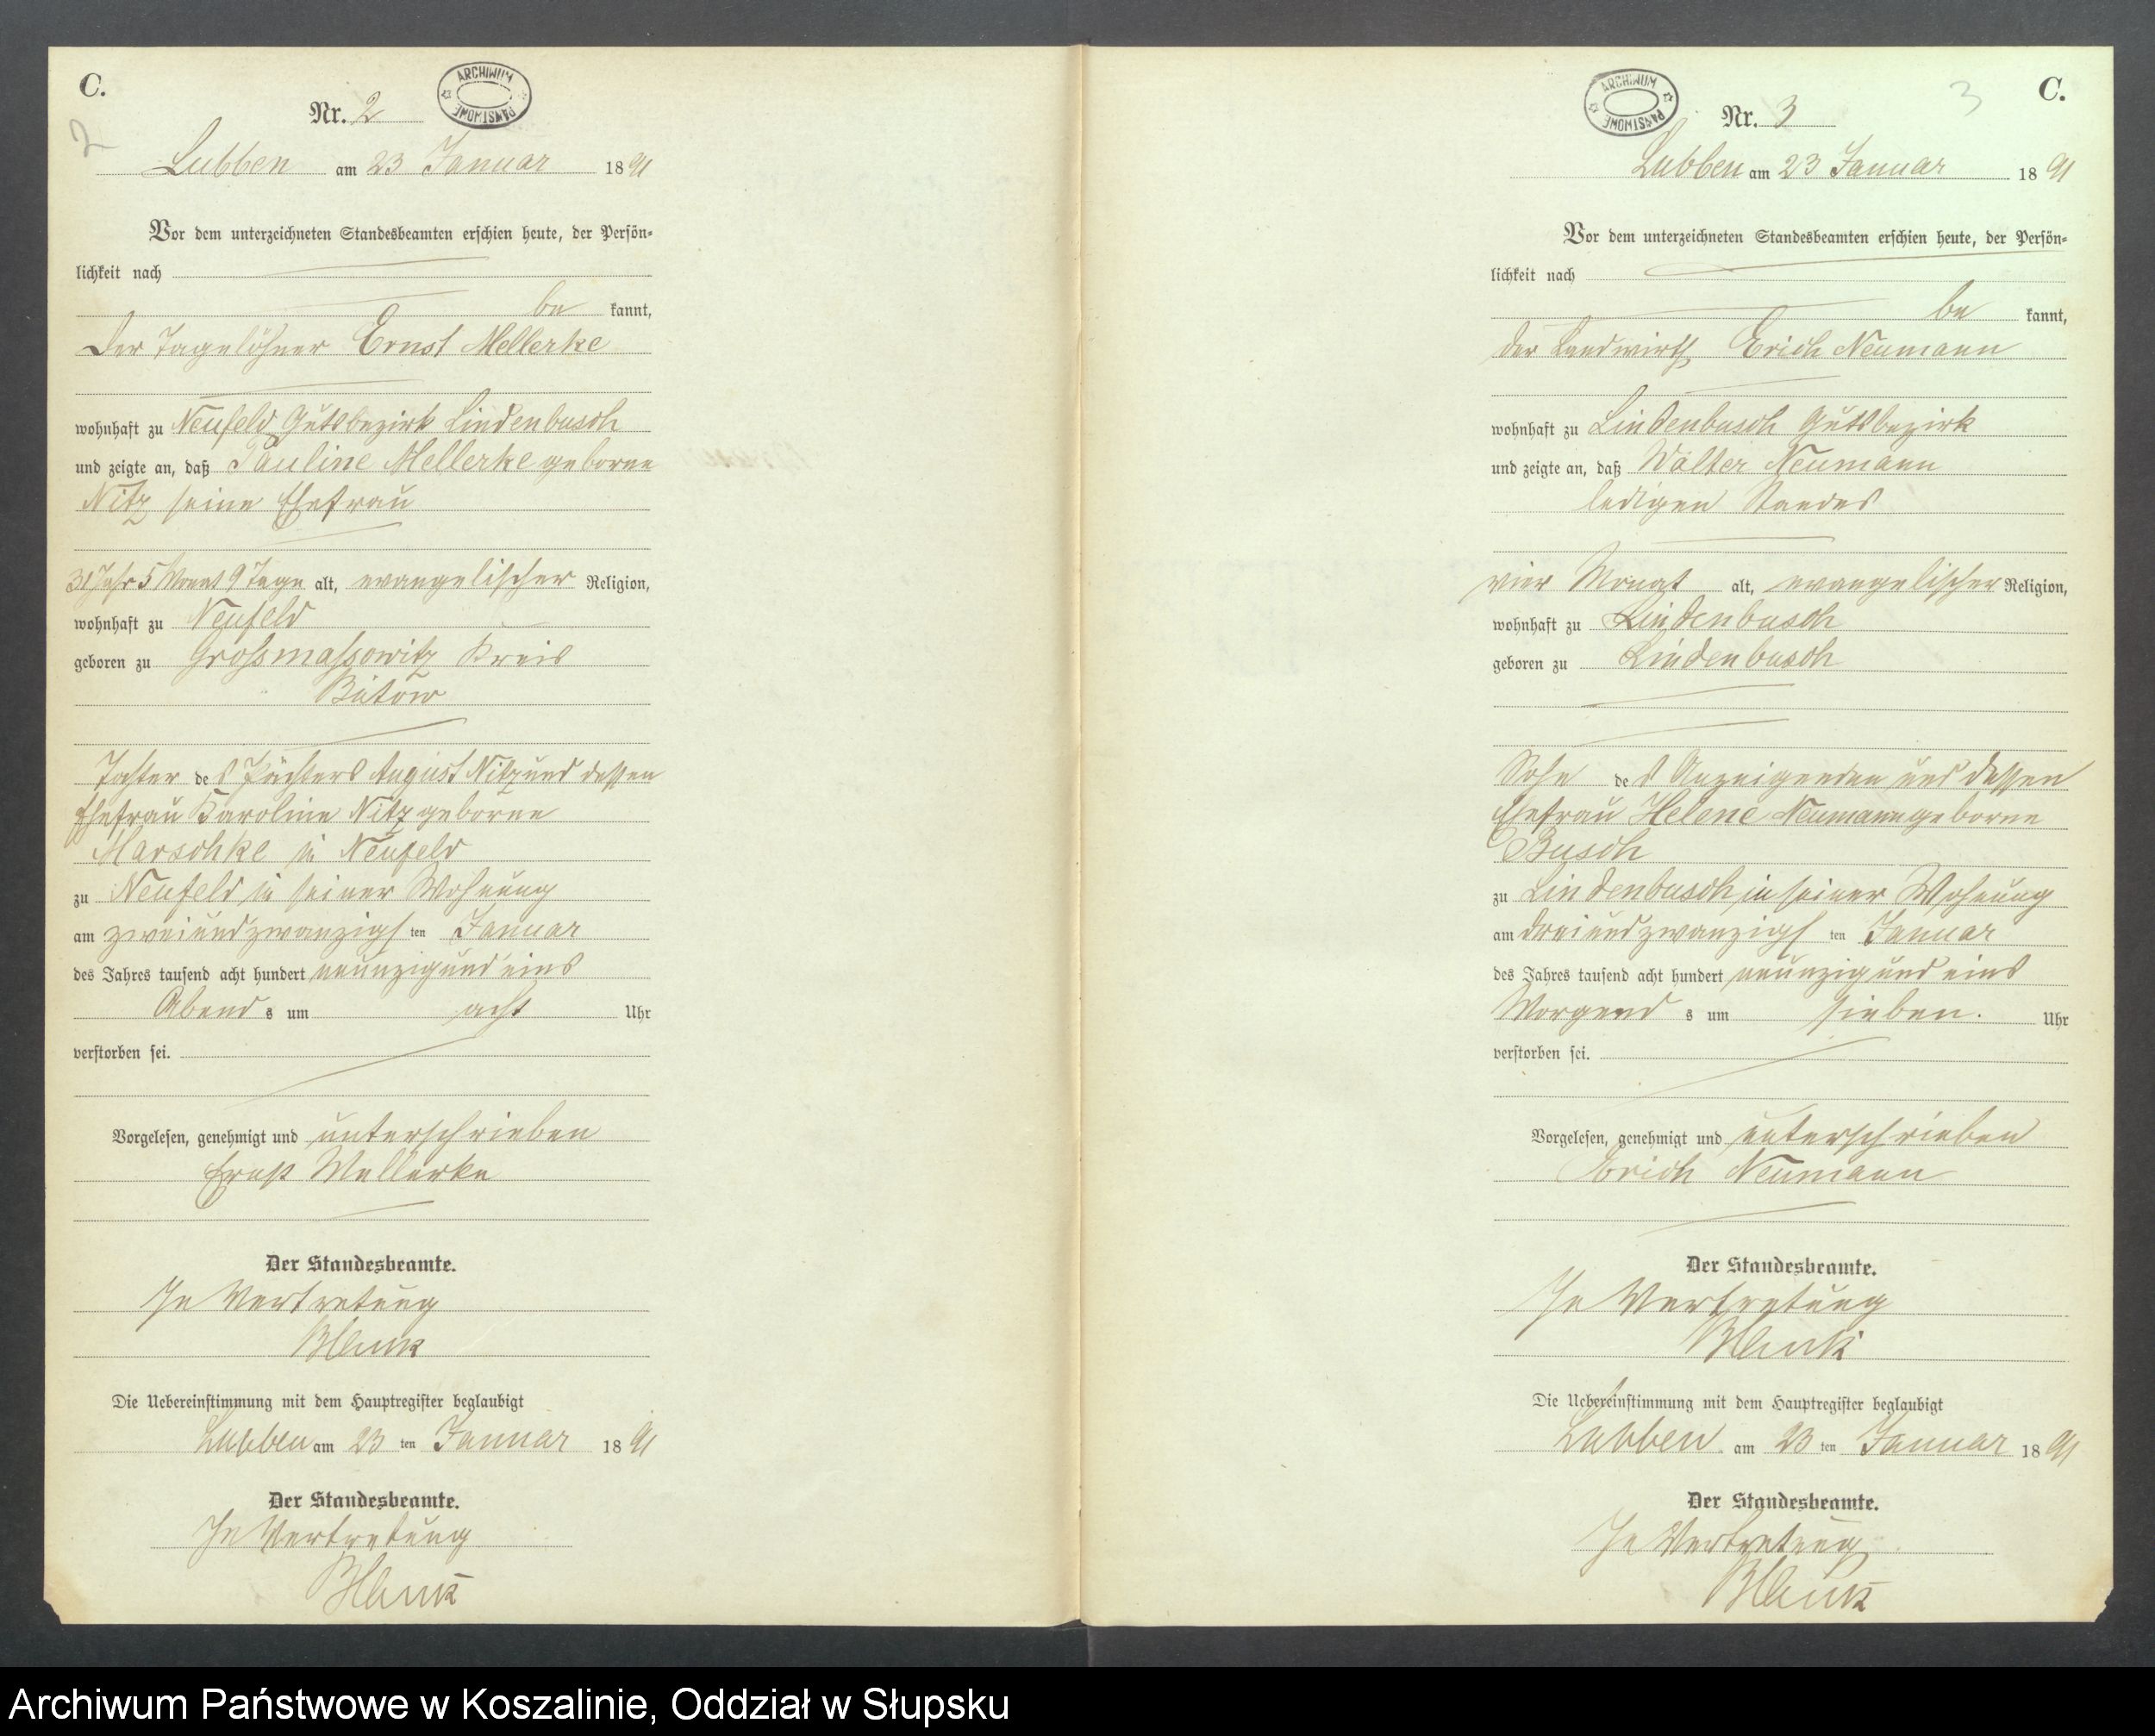 C.
Nr. 2
ARCHIWUM PAŃSTWOWE
2
Lubben am 23 Januar 1891
Vor dem unterzeichneten Standesbeamten erschien heute, der Persön-
lichkeit nach
be kannt,
der Tagelöhner Ernst Mellerke
wohnhaft zu Neufeld Gutsbezirk Lindenbusch
und zeigte an, daß Pauline Mellerke geborne
Nitz seine Ehefrau
31 Jahr 5 Monat 9 Tage alt, evangelischer Religion,
wohnhaft zu Neufeld
geboren zu Großmassowitz Kreis
Bütow
Tochter des Pächters August Nitz und dessen
Ehefrau Karoline Nitz geborne
Marschke in Neufeld
zu Neufeld in seiner Wohnung
am zweiundzwanzigsten Januar
des Jahres tausend acht hundert neunzig und eins
Abends um acht Uhr
verstorben sei.
Vorgelesen, genehmigt und unterschrieben
Ernst Mellerke
Der Standesbeamte.
In Vertretung
Blank
Die Uebereinstimmung mit dem Hauptregister beglaubigt
Lubben am 23 ten Januar 1891
Der Standesbeamte.
In Vertretung
Blank
C.
3
ARCHIWUM PAŃSTWOWE
Nr. 3
Lubben am 23 Januar 1891
Vor dem unterzeichneten Standesbeamten erschien heute, der Persön-
lichkeit nach
be kannt,
der Landwirth Erich Neumann
wohnhaft zu Lindenbusch Gutsbezirk
und zeigte an, daß Walter Neumann
ledigen Standes
vier Monat alt, evangelischer Religion,
wohnhaft zu Lindenbusch
geboren zu Lindenbusch
Sohn des Anzeigenden und dessen
Ehefrau Helene Neumann geborne
Busch
zu Lindenbusch in seiner Wohnung
am dreiundzwanzigsten Januar
des Jahres tausend acht hundert neunzig und eins
Morgends um sieben. Uhr
verstorben sei.
Vorgelesen, genehmigt und unterschrieben
Erich Neumann
Der Standesbeamte.
In Vertretung
Blank
Die Uebereinstimmung mit dem Hauptregister beglaubigt
Lubben am 23 ten Januar 1891
Der Standesbeamte.
In Vertretung
Blank
Archiwum Państwowe w Koszalinie, Oddział w Słupsku